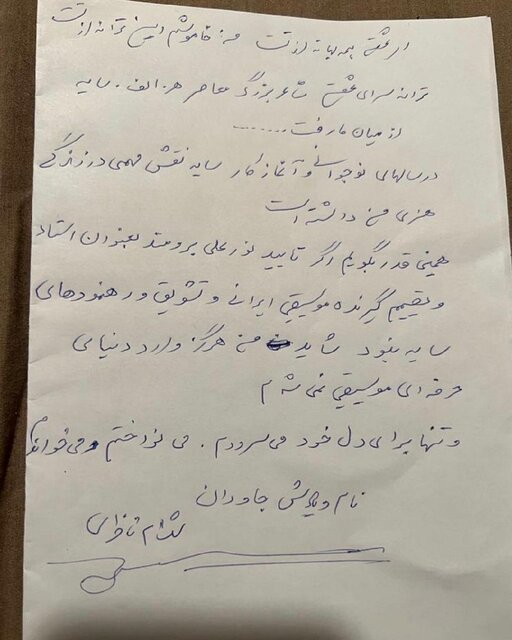 ای عشق همه بهانه از تست من خاموشم این ترانه از تست
ترانه سرای عشق شاعر بزرگ معاصر هـ . الف . سایه
از میان ما رفت .......
در سالهای نوجوانی و آغاز کار سایه نقش مهمی در زندگی
هنری من داشته است
همین قدر بگویم اگر تایید نورعلی برومند بعنوان استاد
و تصمیم گیرنده موسیقی ایرانی و تشویق و رهنمودهای
سایه نبود شاید من هرگز وارد دنیای
حرفه ای موسیقی نمی شدم
و تنها برای دل خود می سرودم . می نواختم و می خواندم
نام و یادش جاودان
شهرام ناظری